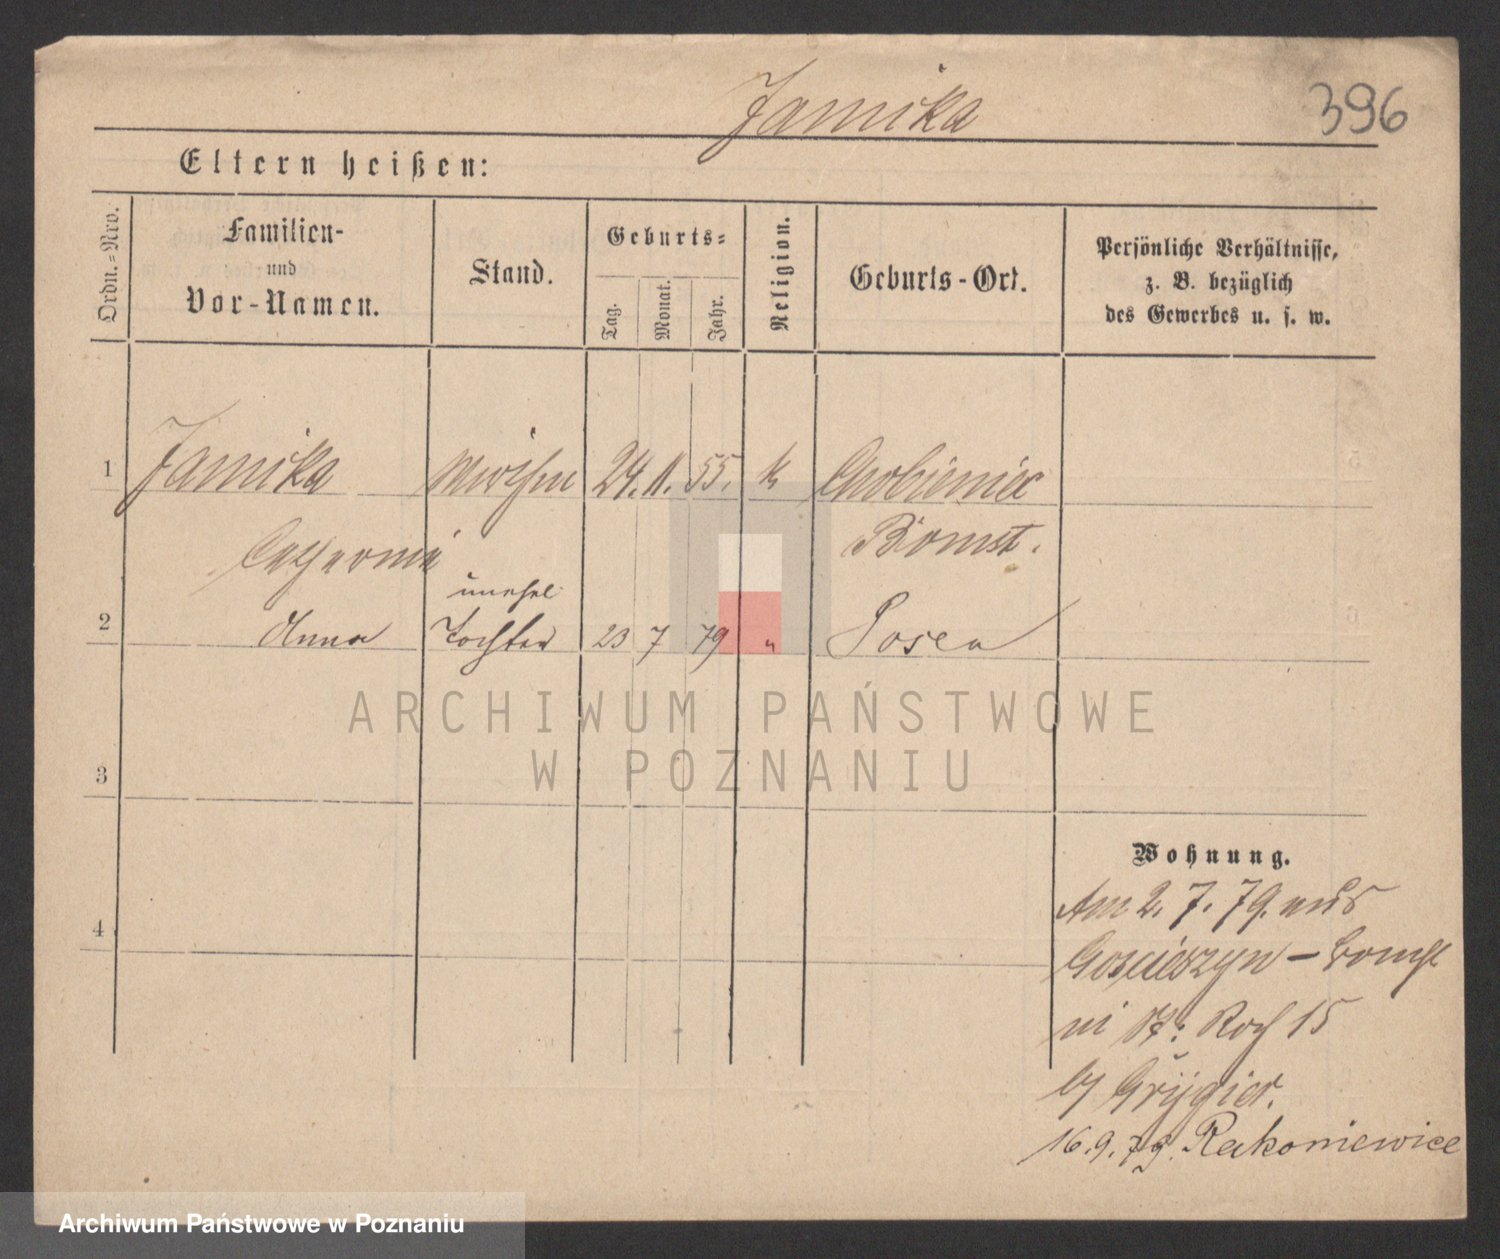 Jamika
396
Eltern heißen:
Ordn.=Nro.
Familien-
und
Vor-Namen.
Stand.
Geburts=
Tag.
Monat.
Jahr.
Religion.
Geburts-Ort.
Persönliche Verhältnisse,
z. B. bezüglich
des Gewerbes u. s. w.
1 Jamika 24. 11. 55. k
Bomst.
unehel
2 Anna Tochter 23 7 79 " Posen
3
4
Wohnung.
Am 2. 7. 79. aus
Goscieszyn - Bomst
Roch 15
Grÿgier.
16. 9. 79. Rakoniewice
ARCHIWUM PAŃSTWOWE
W POZNANIU
Archiwum Państwowe w Poznaniu